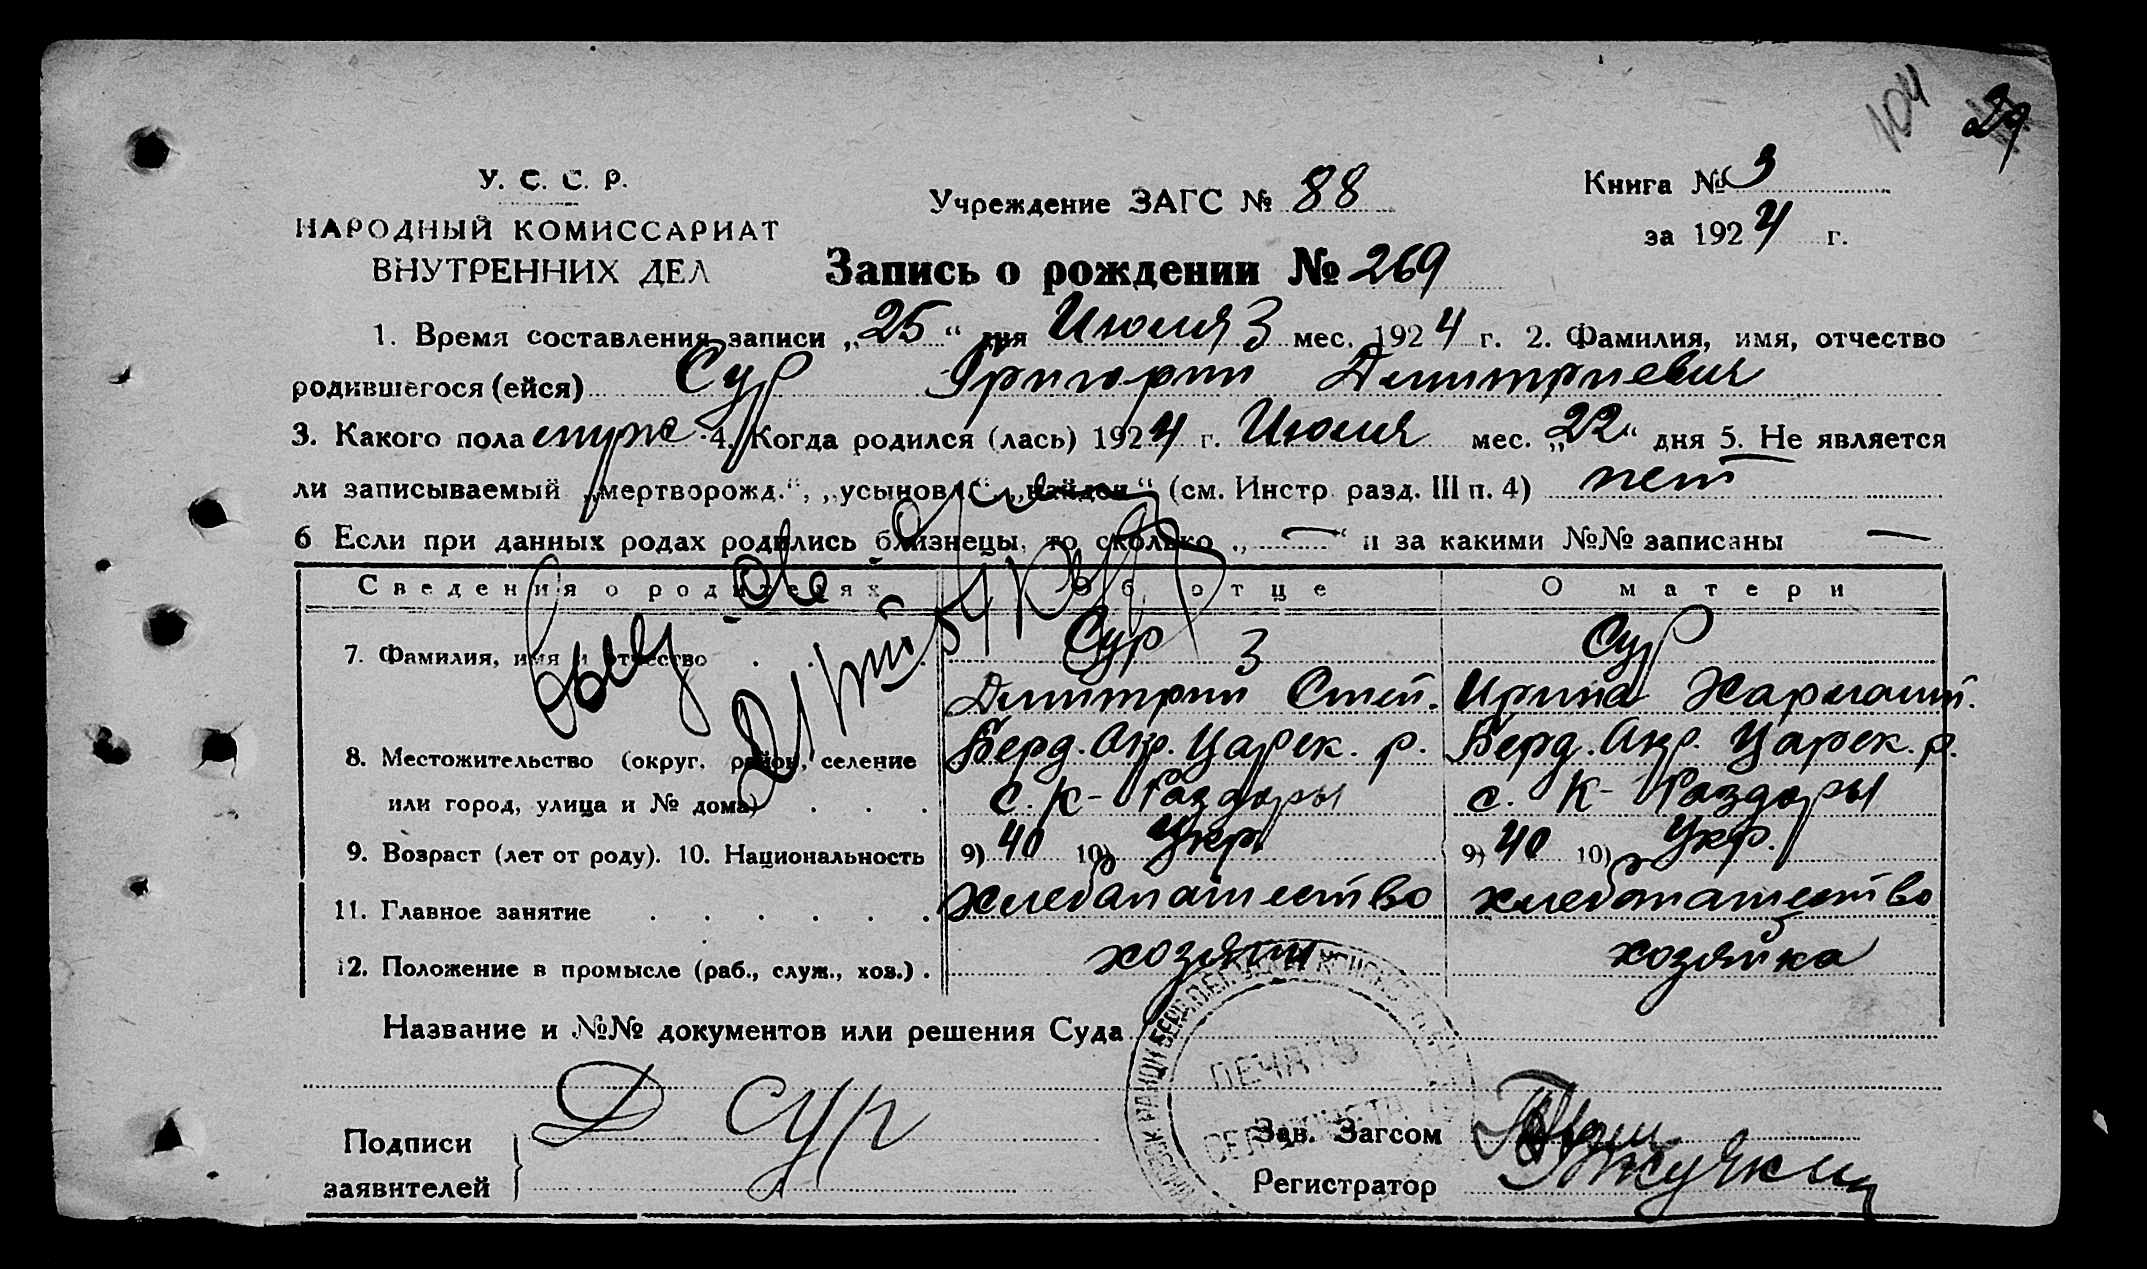 104 29
У. С. С. Р.
НАРОДНЫЙ КОМИССАРИАТ
ВНУТРЕННИХ ДЕЛ
Учреждение ЗАГС № 88
Книга № 3
за 1924 г.
Запись о рождении № 269
1. Время составления записи „25“ дня Июля 3 мес. 1924 г. 2. Фамилия, имя, отчество
родившегося (ейся) Сур Григорий Дмитриевич
3. Какого пола муже 4. Когда родился (лась) 1924 г. Июля мес. „22“ дня 5. Не является
ли записываемый „мертворожд.“, „усыновл.“ „найден“ (см. Инстр. разд. III п. 4) нет
6 Если при данных родах родились близнецы, то сколько „—“ и за какими №№ записаны —
Сведения о родителях Об отце О матери
7. Фамилия, имя и отчество Сур 3 Сур
Димитрий Степ. Ирина Харлами.
8. Местожительство (округ, район, селение Берд. Окр. Царек. р. Берд. Окр. Царек. р.
или город, улица и № дома) с. К-Раздоры с. К-Раздоры
9. Возраст (лет от роду). 10. Национальность 9) 40 10) Укр. 9) 40 10) Укр.
11. Главное занятие хлебопашество хлебопашество
12. Положение в промысле (раб., служ., хоз.) хозяин хозяйка
Название и №№ документов или решения Суда
ПЕЧАТЬ
Подписи
заявителей
Д Сур
Зав. Загсом
Регистратор